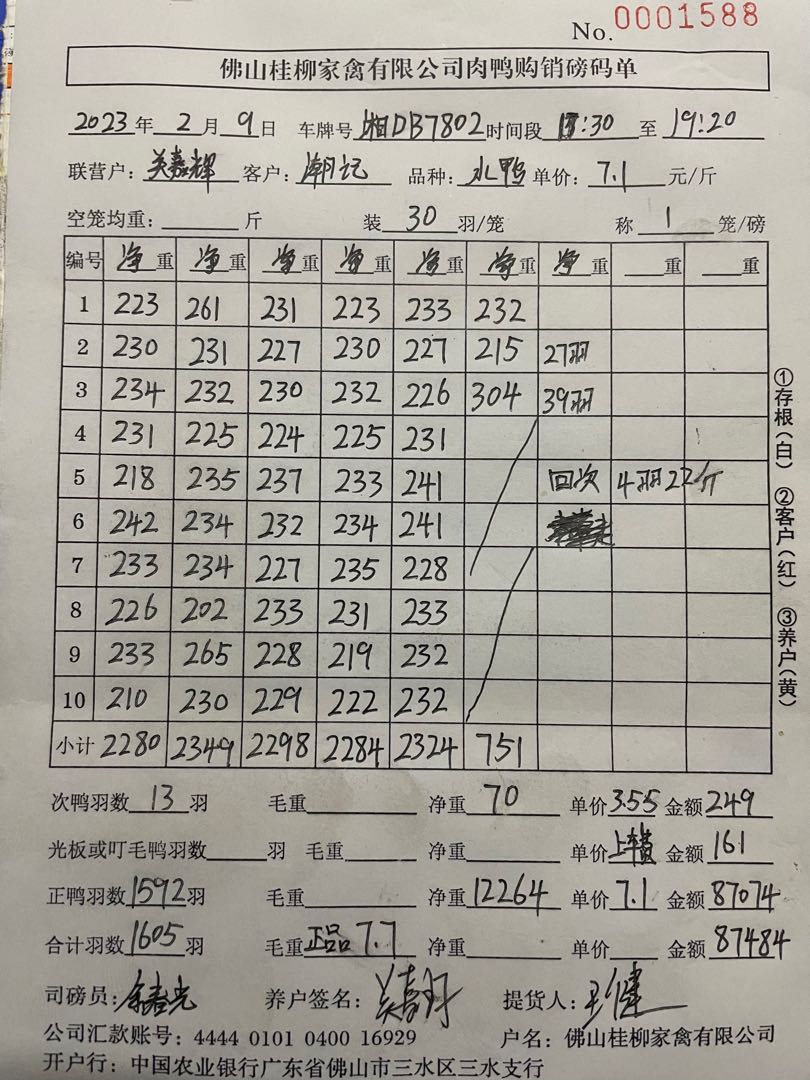 No. 0001588
佛山桂柳家禽有限公司肉鸭购销磅码单
2023年 2月 9日 车牌号 湘DB7802 时间段 :30 至 19:20
联营户: 关嘉辉 客户: 潮记 品种: 水鸭 单价: 7.1 元/斤
空笼均重: 斤 装 30 羽/笼 称 1 笼/磅
编号 净重 净重 净重 净重 净重 净重 净重 重 重
1 223 261 231 223 233 232
2 230 231 227 230 227 215 27羽
3 234 232 230 232 226 304 39羽
4 231 225 224 225 231
5 218 235 237 233 241 回次 4羽22斤
6 242 234 232 234 241
7 233 234 227 235 228
8 226 202 233 231 233
9 233 265 228 219 232
10 210 230 229 222 232
小计 2280 2349 2298 2284 2324 751
次鸭羽数 13 羽 毛重 净重 70 单价 3.55 金额 249
光板或叮毛鸭羽数 羽 毛重 净重 单价 上车费 金额 161
正鸭羽数 1592 羽 毛重 净重 12264 单价 7.1 金额 87074
合计羽数 1605 羽 毛重 正品 7.7 净重 单价 金额 87484
司磅员: 养户签名: 提货人:
公司汇款账号: 4444 0101 0400 16929 户名: 佛山桂柳家禽有限公司
开户行: 中国农业银行广东省佛山市三水区三水支行
①存根(白) ②客户(红) ③养户(黄)